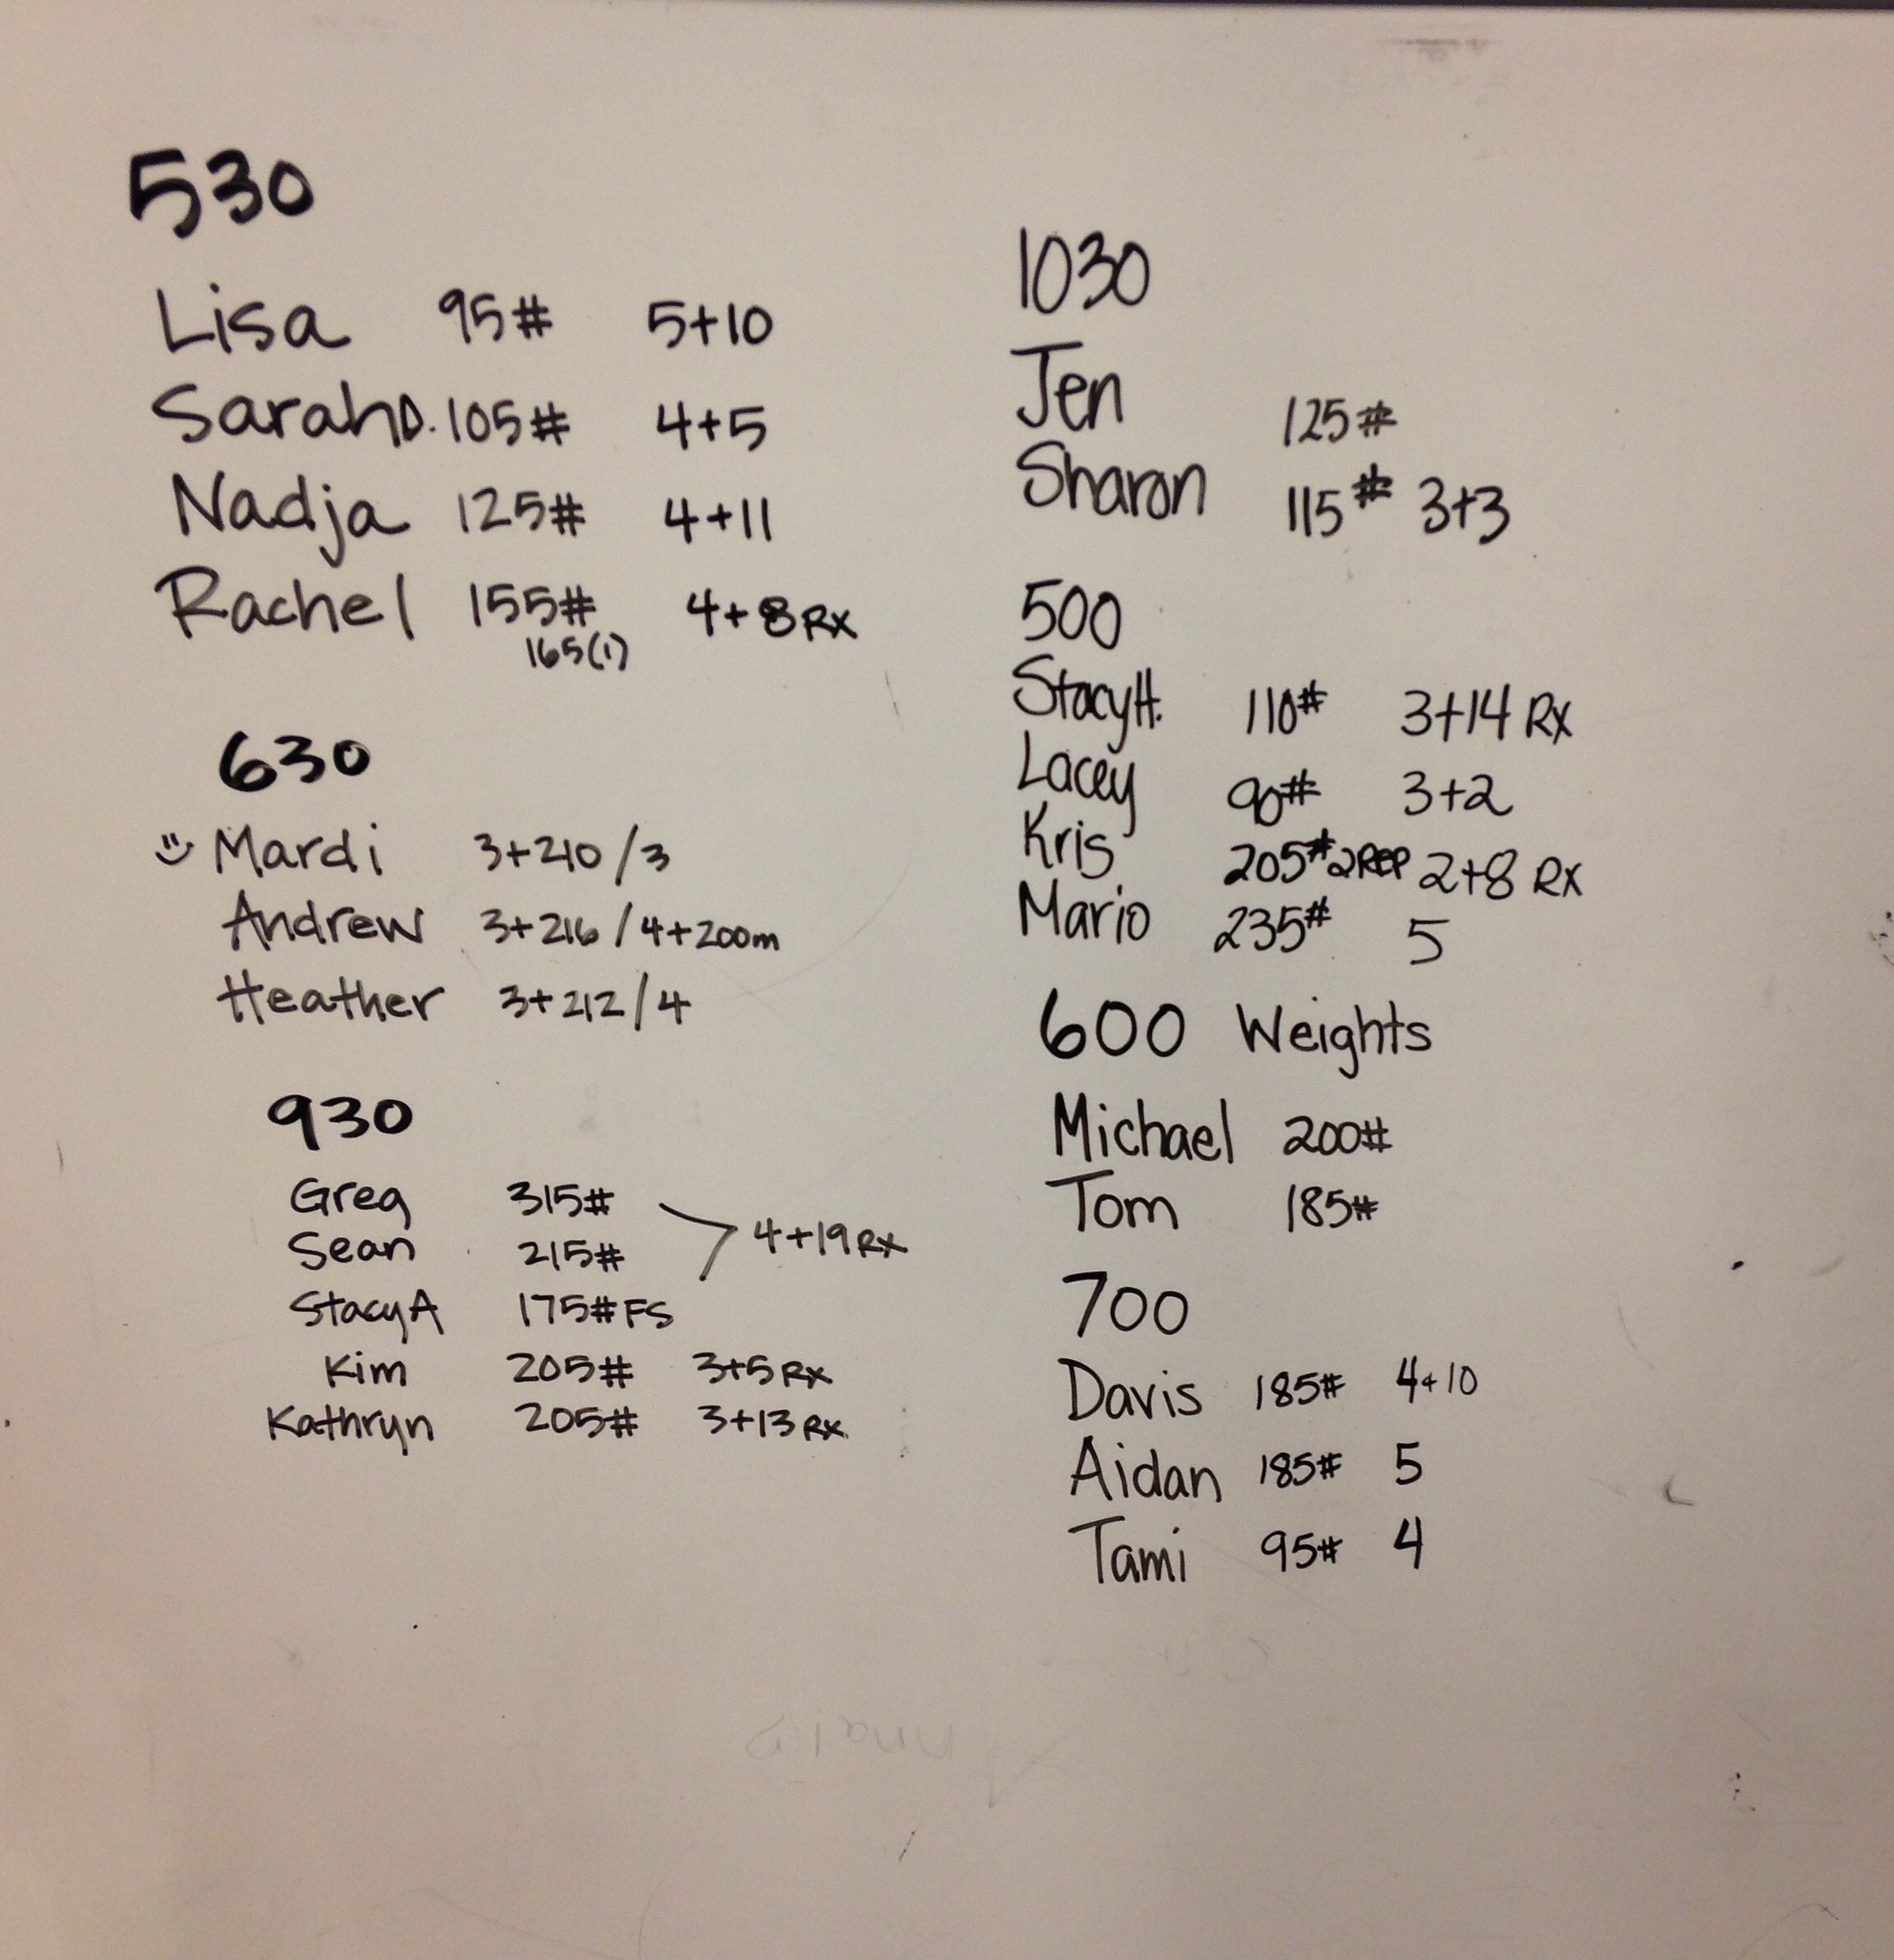 530
Lisa 95# 5+10
Sarah D. 105# 4+5
Nadja 125# 4+11
Rachel 155# 4+8 RX
165(1)
630
Mardi 3+210/3
Andrew 3+216/4+200m
Heather 3+212/4
930
Greg 315#
Sean 215#
4+19 RX
Stacy A 175# FS
Kim 205# 3+5 RX
Kathryn 205# 3+13 RX
1030
Jen 125#
Sharon 115# 3+3
500
Stacy H. 110# 3+14 RX
Lacey 90# 3+2
Kris 205# 2 REP 2+8 RX
Mario 235# 5
600 Weights
Michael 200#
Tom 185#
700
Davis 185# 4+10
Aidan 185# 5
Tami 95# 4